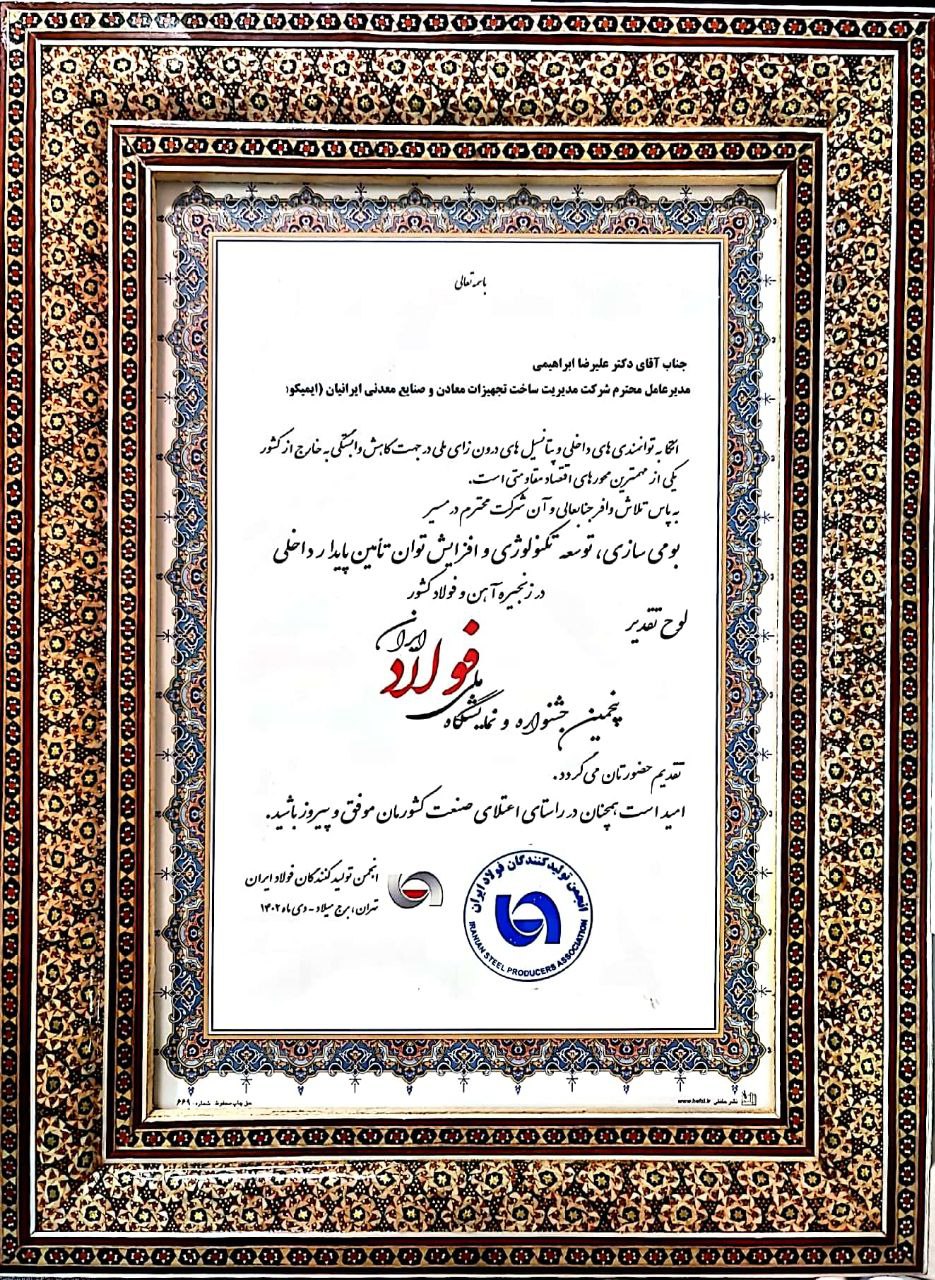 باسمه تعالی
جناب آقای دکتر علیرضا ابراهیمی
مدیرعامل محترم شرکت مدیریت ساخت تجهیزات معادن و صنایع معدنی ایرانیان (ایمیکو)
اتکا به توانمندی های داخلی و پتانسیل های درون زای ملی در جهت کاهش وابستگی به خارج از کشور
یکی از مهمترین محورهای اقتصاد مقاومتی است.
به پاس تلاش وافر جنابعالی و آن شرکت محترم در مسیر
بومی سازی، توسعه تکنولوژی و افزایش توان تأمین پایدار داخلی
در زنجیره آهن و فولاد کشور
لوح تقدیر
پنجمین جشنواره و نمایشگاه ملی فولاد ایران
تقدیم حضورتان می گردد.
امید است همچنان در راستای اعتلای صنعت کشورمان موفق و پیروز باشید.
انجمن تولیدکنندگان فولاد ایران
تهران، برج میلاد - دی ماه ۱۴۰۲
انجمن تولیدکنندگان فولاد ایران
IRANIAN STEEL PRODUCERS ASSOCIATION
نشر حافظی www.hafzi.ir
حق چاپ محفوظ شماره ۶۶۹